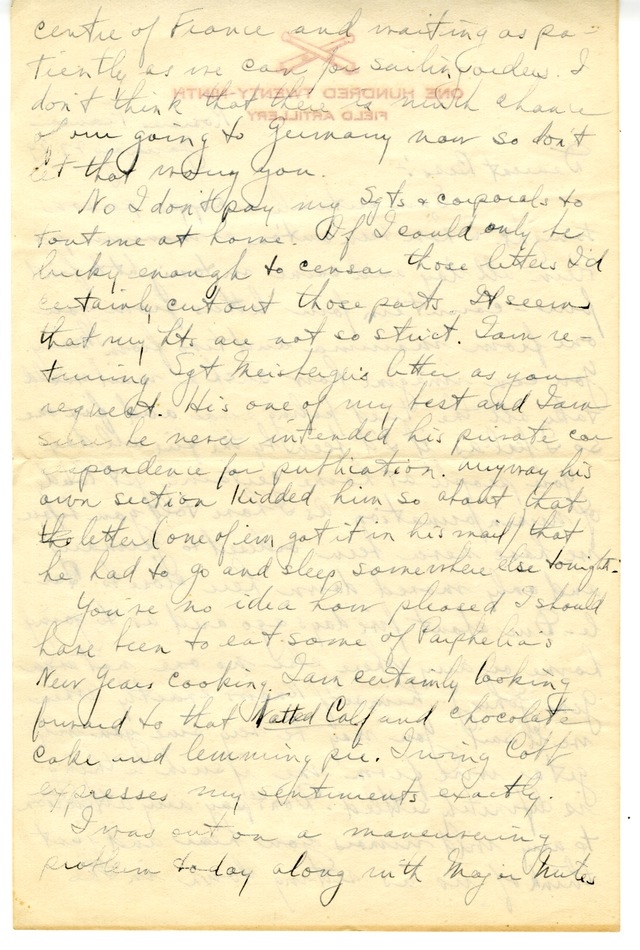 centre of France and waiting as pa-
tiently as we can for sailing orders. I
don't think that there is much chance
of our going to Germany now so don't
let that worry you.
No I don't pay my Sgts & corporals to
tout me at home. If I could only be
lucky enough to censor those letters I'd
certainly cut out those parts. It seems
that my Lts are not so strict. I am re-
turning Sgt Meisberger's letter as you
request. His one of my best and I am
sure he never intended his private cor
respondence for publication. Anyway his
own section kidded him so about that
letter (one of em got it in his mail) that
he had to go and sleep somewhere else tonight.
You've no idea how pleased I should
have been to eat some of Paiphelia's
New Years cooking. I am certainly looking
forward to that Fatted Calf and chocolate
cake and lemming pie. Irving Cobb
expresses my sentiments exactly.
I was out on a maneuvering
problem today along with Major Miles
ONE HUNDRED TWENTY-NINTH
FIELD ARTILLERY